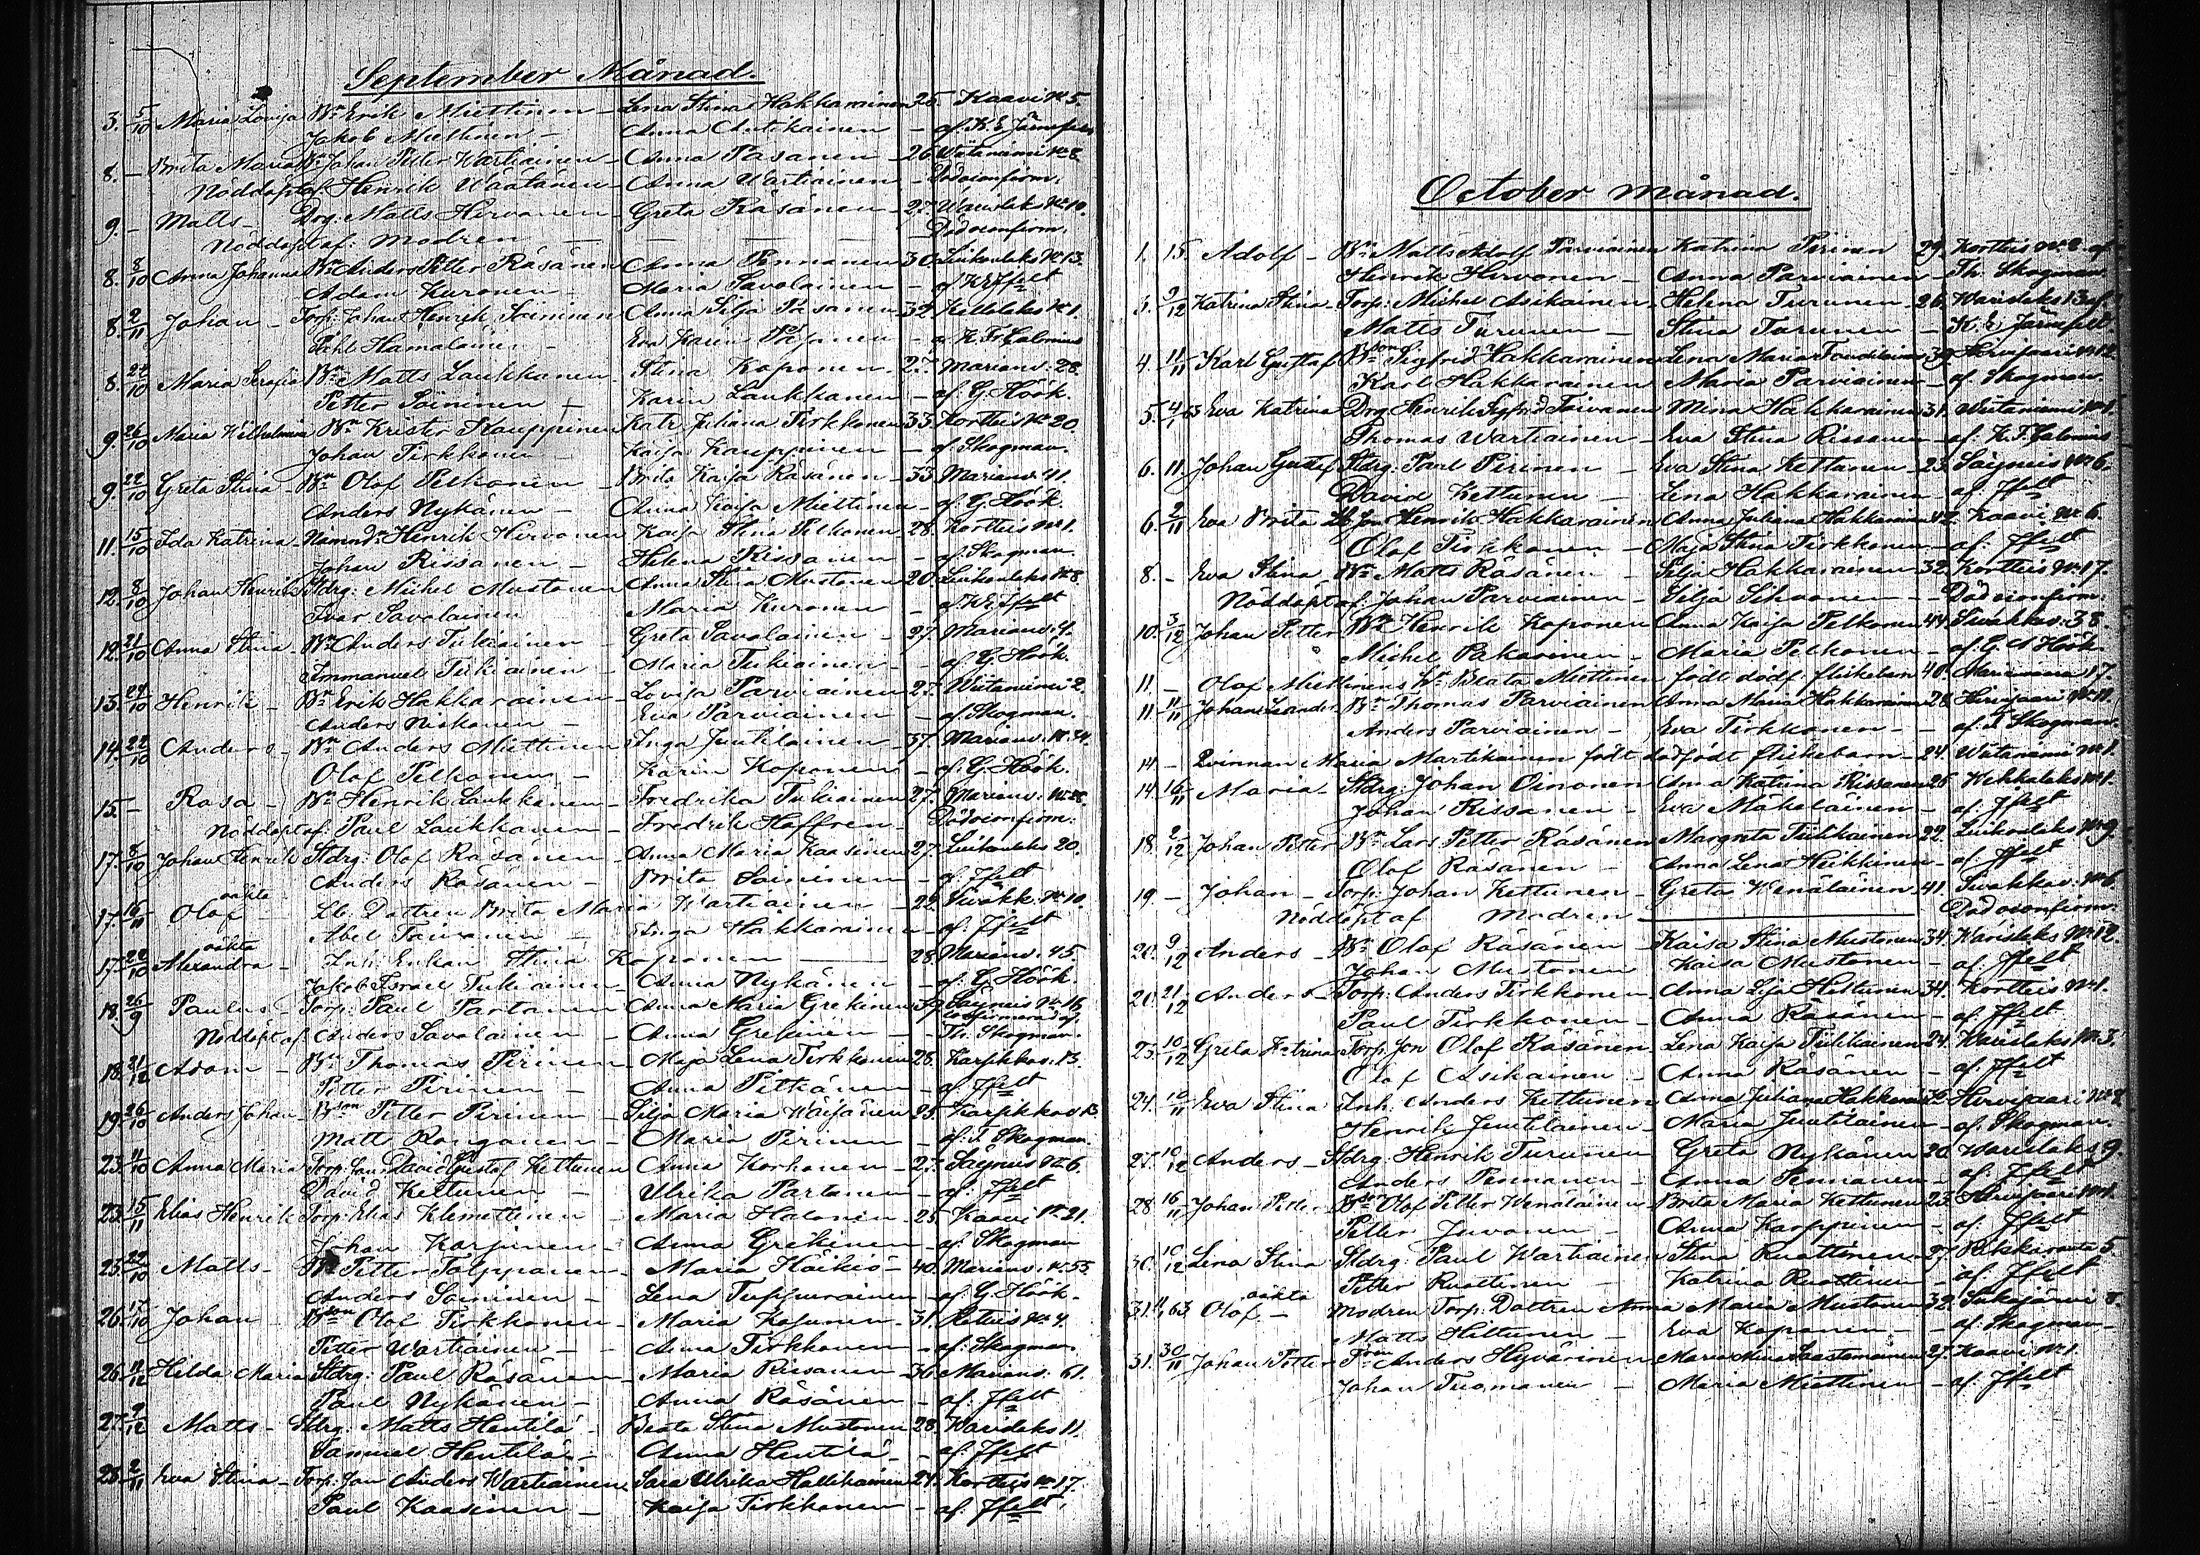 September Månad.
3. 5/10 Maria Lovisa Bn Erik Miettinen – Lena Stina Hakkarainen 25. Kaavi N 5.
Jakob Miettinen – Anna Antikainen – af. K E Järnefelt
8. – Brita Maria Bn Johan Petter Wartiainen – Anna Pasanen – 26 Wiitaniemi N 8
Nöddöpt af Henrik Väätänen – Anna Wartiainen – Död oconfirm.
9. – Matts – Drg. Matts Hirvonen – Greta Räsänen – 27.
Nöddöpt af: Modren – Död oconfirm.
8. 8/10 Anna Johanna Bn Anders Petter Räsänen Anna Pennanen 30. Luikonlaks N 13.
Adam Kuronen – Maria Savolainen – af
8. 2/11 Johan – Torp. Johan Henrik Soininen Anna Silja Pasanen 32 N 1.
Påhl Hämäläinen – Eva Karin – af K. F. Calonius
8. 22/10 Maria Serafia Bn Matts Laukkanen – Stina Koponen – 27. Marianv. 28.
Petter Soininen – Karin Laukkanen – af. G. Höök.
9. 26/10 Maria Wilhelmina Bn Krister Kauppinen Katr. Juliana Tirkkonen 33. Kortteis N 20.
Johan Tirkkonen – Kaisa Kauppinen – af Skogman.
9. 22/10 Greta Stina – Bn Olof Pelkonen – Brita Kaisa Räsänen – 33 Marianv. 41.
Anders Nykänen – Anna Kaisa Miettinen – af. G. Höök.
11. 15/10 Ida Katrina – Nämnd: Henrik Hirvonen Kaisa Stina Pelkonen 28. Kortteis N 1.
Johan Rissanen – Helena Rissanen – af. Skogman.
12. 8/10 Johan Henrik Stdrg: Michel Mustonen Anna Stina Mustonen 20. Luikonlaks N 8.
Ivar Savolainen Maria Kuronen – af
12. 21/10 Anna Stina – Bn Anders Tukiainen – Greta Savolainen – 27. Marianv. 4.
Immanuel Tukiainen – Maria Tukiainen – af. G. Höök.
13. 27/10 Henrik – Bn Erik Hakkarainen – Lovisa Parviainen 27. Wiitaniemi 2.
Anders Niskanen – Eva Parviainen – af. Skogman.
14. 22/10 Anders – Bn Anders Miettinen Inga Juutilainen 37. Marianv. N 34.
Olof Pelkonen – Karin Koponen – af. G. Höök.
15. – Rosa – Bn Henrik Laukkanen – Fredrika Tukiainen 27. Marianv. N 28.
Nöddöpt af. Paul Laukkanen – Fredrik Hoffren – Död oconfirm:
17. 8/10 Johan Henrik Stdrg: Olof Räsänen – Anna Maria Kaasinen 27. Luikonlaks 20.
Anders Räsänen – Brita Soininen – af. Jfelt
17. 16/11 oäkta Olof – Lb. Dottren Brita Maria Wartiainen – 22. Sivakk. N 10.
Abel Toivanen – Inga Hakkarainen – af. Jfelt
17. 22/10 oäkta Alexandra – Inh. Enkan Stina Koponen – 28. Marianv. 45.
Jakob Israel Tukiainen – Anna Nykänen – af. G. Höök.
18. 26/9 Paulus – Torp: Paul Partanen Anna Maria Grekinen 39. Säyneis N 16
Nöddöpt af Anders Savolainen – Anna Grekinen – Th. Skogman.
18. 21/12 Adam – Bn Thomas Pirinen – Maja Lena Tirkkonen 28. Karjkkov. 13.
Petter Pirinen – Anna Pitkänen – af. Jfelt
19. 26/10 Anders Johan – Bson Petter Pirinen – Silja Maria Väisänen 25. Karjkkov 13.
Matt Ronganen – Maria Pirinen – af. T. Skogman.
23. 11/10 Anna Maria Torp: Son David Gustaf Kettunen Anna Korhonen – 27. Säyneis N 6.
David Kettunen – Ulrika Partanen – af. Jfelt
23. 15/11 Elias Henrik Torp: Elias Klemettinen – Maria Halonen – 25 Kaavi N 21.
Johan Karpinen – Anna Grekinen – af. Skogman
25. 22/10 Matts – Bn Petter Tolppanen – Maria Häikiö – 40. Marianv. N 55.
Anders Soininen – Lena Tuppurainen – af. G. Höök.
26. 17/10 Johan – Bson Olof Tirkkonen – Maria Koponen – 31. N 4.
Petter Wartiainen – Anna Tirkkonen – af. Skogman
26. 11/12 Hilda Maria Stdrg: Paul Räsänen – Maria Rissanen – 36 Marianv. 61.
Paul Nykänen – Anna Räsänen – af. Jfelt
27. 9/12 Matts – Stdrg. Matts Hentilä – Beata Stina Mustonen 28. Warislaks 11.
Samuel Hentilä – Anna Hentilä – af. Jfelt
28. 2/11 Eva Stina – Torp: Son Anders Wartiainen Sara Ulrika Hakkarainen 24. Kortteis N 17.
Paul Kaasinen – Kaisa Tirkkonen – af. Jfelt.
October Månad.
1. 15. Adolf – Bn Matts Adolf Parviainen Katrina Pirinen 29. Kortteis N 2. af
Henrik Hirvonen – Anna Parviainen – Th. Skogman.
3. 9/12 Katrina Stina – Torp: Michel Asikainen – Helena Turunen – 26. Warislaks 13. af
Matts Turunen – Stina Turunen – K. E. Järnefelt
4. 11/11 Karl Gustaf Bson Sigfrid Hakkarainen Lena Maria 39. Hirvijaari N 12.
Karl Hakkarainen Maria Parviainen – af. Skogman.
5. 4/1 63 Eva Katrina Drg Henrik Sigfrid Toivanen Mina Hakkarainen 31. Wiitaniemi N 1.
Thomas Wartiainen – Eva Stina Rissanen – af. K. F. Calonius
6. 11. Johan Gustaf Stdrg: Paul Pirinen – Eva Stina Kettunen – 23. Säyneis N 6.
David Kettunen – Lena Hakkarainen – af. Jfelt
6. 2/11 Eva Brita Lb Son Henrik Hakkarainen Anna Juliana Hakkarainen 42. Kaavi N 6.
Olof Tirkkonen – Maja Stina Tirkkonen – af. Jfelt
8. – Eva Stina Bn Matts Räsänen – Silja Hakkarainen 32. Kortteis N 17.
Nöddöpt af. Johan Parviainen – Silja Sihvonen – Död oconfirm.
10. 3/12 Johan Petter Bn Henrik Koponen Anna Kaisa Pelkonen 44. Sivakkav. 38.
Michel Pakarinen – Maria Pelkonen – af. G. A Höök.
11. – Olof Miettinens Hu Beata Miettinen födt dödf. flickebarn 40. 17.
11. 11/11 Johan Leander Bn Thomas Parviainen Anna Maria Hakkarainen 28. Hirvijaari N 11.
Anders Parviainen – Eva Tirkkonen – af. T Skogman.
14 – Qvinnan Maria Martikainen födt dödfödt flickebarn – 24. Wiitaniemi N 1.
14. 16/11 Maria – Stdrg. Johan Oinonen Anna Katrina Rissanen 26 N 1.
Johan Rissanen – Eva Mäkeläinen – af. Jfelt
18. 2/12 Johan Petter Bn Lars Petter Räsänen Margreta Tiihkainen 22. Luikonlaks N 9.
Olof Räsänen – Anna Lena Heikkinen – af. Jfelt
19 – Johan – Torp: Johan Kettunen – Greta Wenäläinen 41. Sivakkav. N 6.
Nöddöpt af Modren – Död oconfirm.
20. 9/12 Anders – Bn Olof Räsänen – Kaisa Stina Mustonen 34. Warislaks N 12.
Johan Mustonen Kaisa Mustonen – af. Jfelt
20. 21/12 Anders – Torp: Anders Tirkkonen. Anna Lisa Hiltunen 34. Kortteis N 1.
Paul Tirkkonen – Anna Räsänen – af. Jfelt
23. 10/12 Greta Katrina Torp. Son Olof Räsänen. Lena Kaisa Tiihkainen 24. Warislaks N 3.
Olof Asikainen – Anna Räsänen – af. Jfelt
24. 10/11 Eva Stina Inh: Anders Kettunen Anna Juliana Hakkarainen 36 Hirvijaari N
Henrik Juutilainen – Maria Juutilainen – af. Skogman.
27. 10/12 Anders – Stdrg. Henrik Turunen Greta Nykänen 20. Warislaks 9.
Anders Pennanen – Anna Pennanen – af. Jfelt
28. 16/11 Johan Petter – Bson Olof Petter Wenäläinen Brita Maria Kettunen 23. Hirvijaari N 1.
Petter Juvonen – Anna Karppinen – af. Jfelt
30. 10/12 Lena Stina Stdrg. Paul Wartiainen Stina Ruottinen – 27. 5.
Petter Ruottinen – Katrina Ruottinen – af. Jfelt
31. 63 oäkta Olof – Modren Torp. Dottren Anna Maria Mustonen 32.
Matts Hiltunen – Eva Koponen – af. Skogman –
31. 30/11 Johan Petter Anders Hyvärinen – Maria Stina Saastamoinen 27. Kaavi N 1.
Johan Tuomanen – Maria Miettinen – af. Jfelt